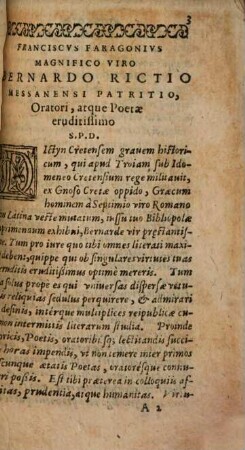 3
FRANCISCVS FARAGONIVS
MAGNIFICO VIRO
BERNARDO RICTIO
MESSANENSI PATRITIO,
Oratori, atque Poetæ
eruditissimo
S.P.D.
DIctyn Cretensem grauem histori
cum, qui apud Troiam sub Ido
meneo Cretensium rege militauit,
ex Gnoso Cretæ oppido, Græcum
hominem à Septimio viro Romano
Latina veste mutatum, iussu tuo Bibliopolæ
primendum exhibui, Bernarde vir præstanti
Tum pro iure quo tibi omnes literati maxi
debent, quippe qui ob singulares virtutes tuas
eruditis eruditissimus optime mereris. Tum
solus prope es qui vniuersas dispersas ve
reliquias sedulus perquirere, & admirari
desinis, intérque multiplices reipublicæ cu
non intermissis literarum studia. Proinde
oricis, Poetis, oratoribúsq; lectitandis succi
horas impendis, vt non temere inter primos
cunque ætatis Poetas, oratorésque connu
ri possis. Est tibi præterea in colloquiis af
itas, prudentia, atque humanitas. Virtu-
A 2